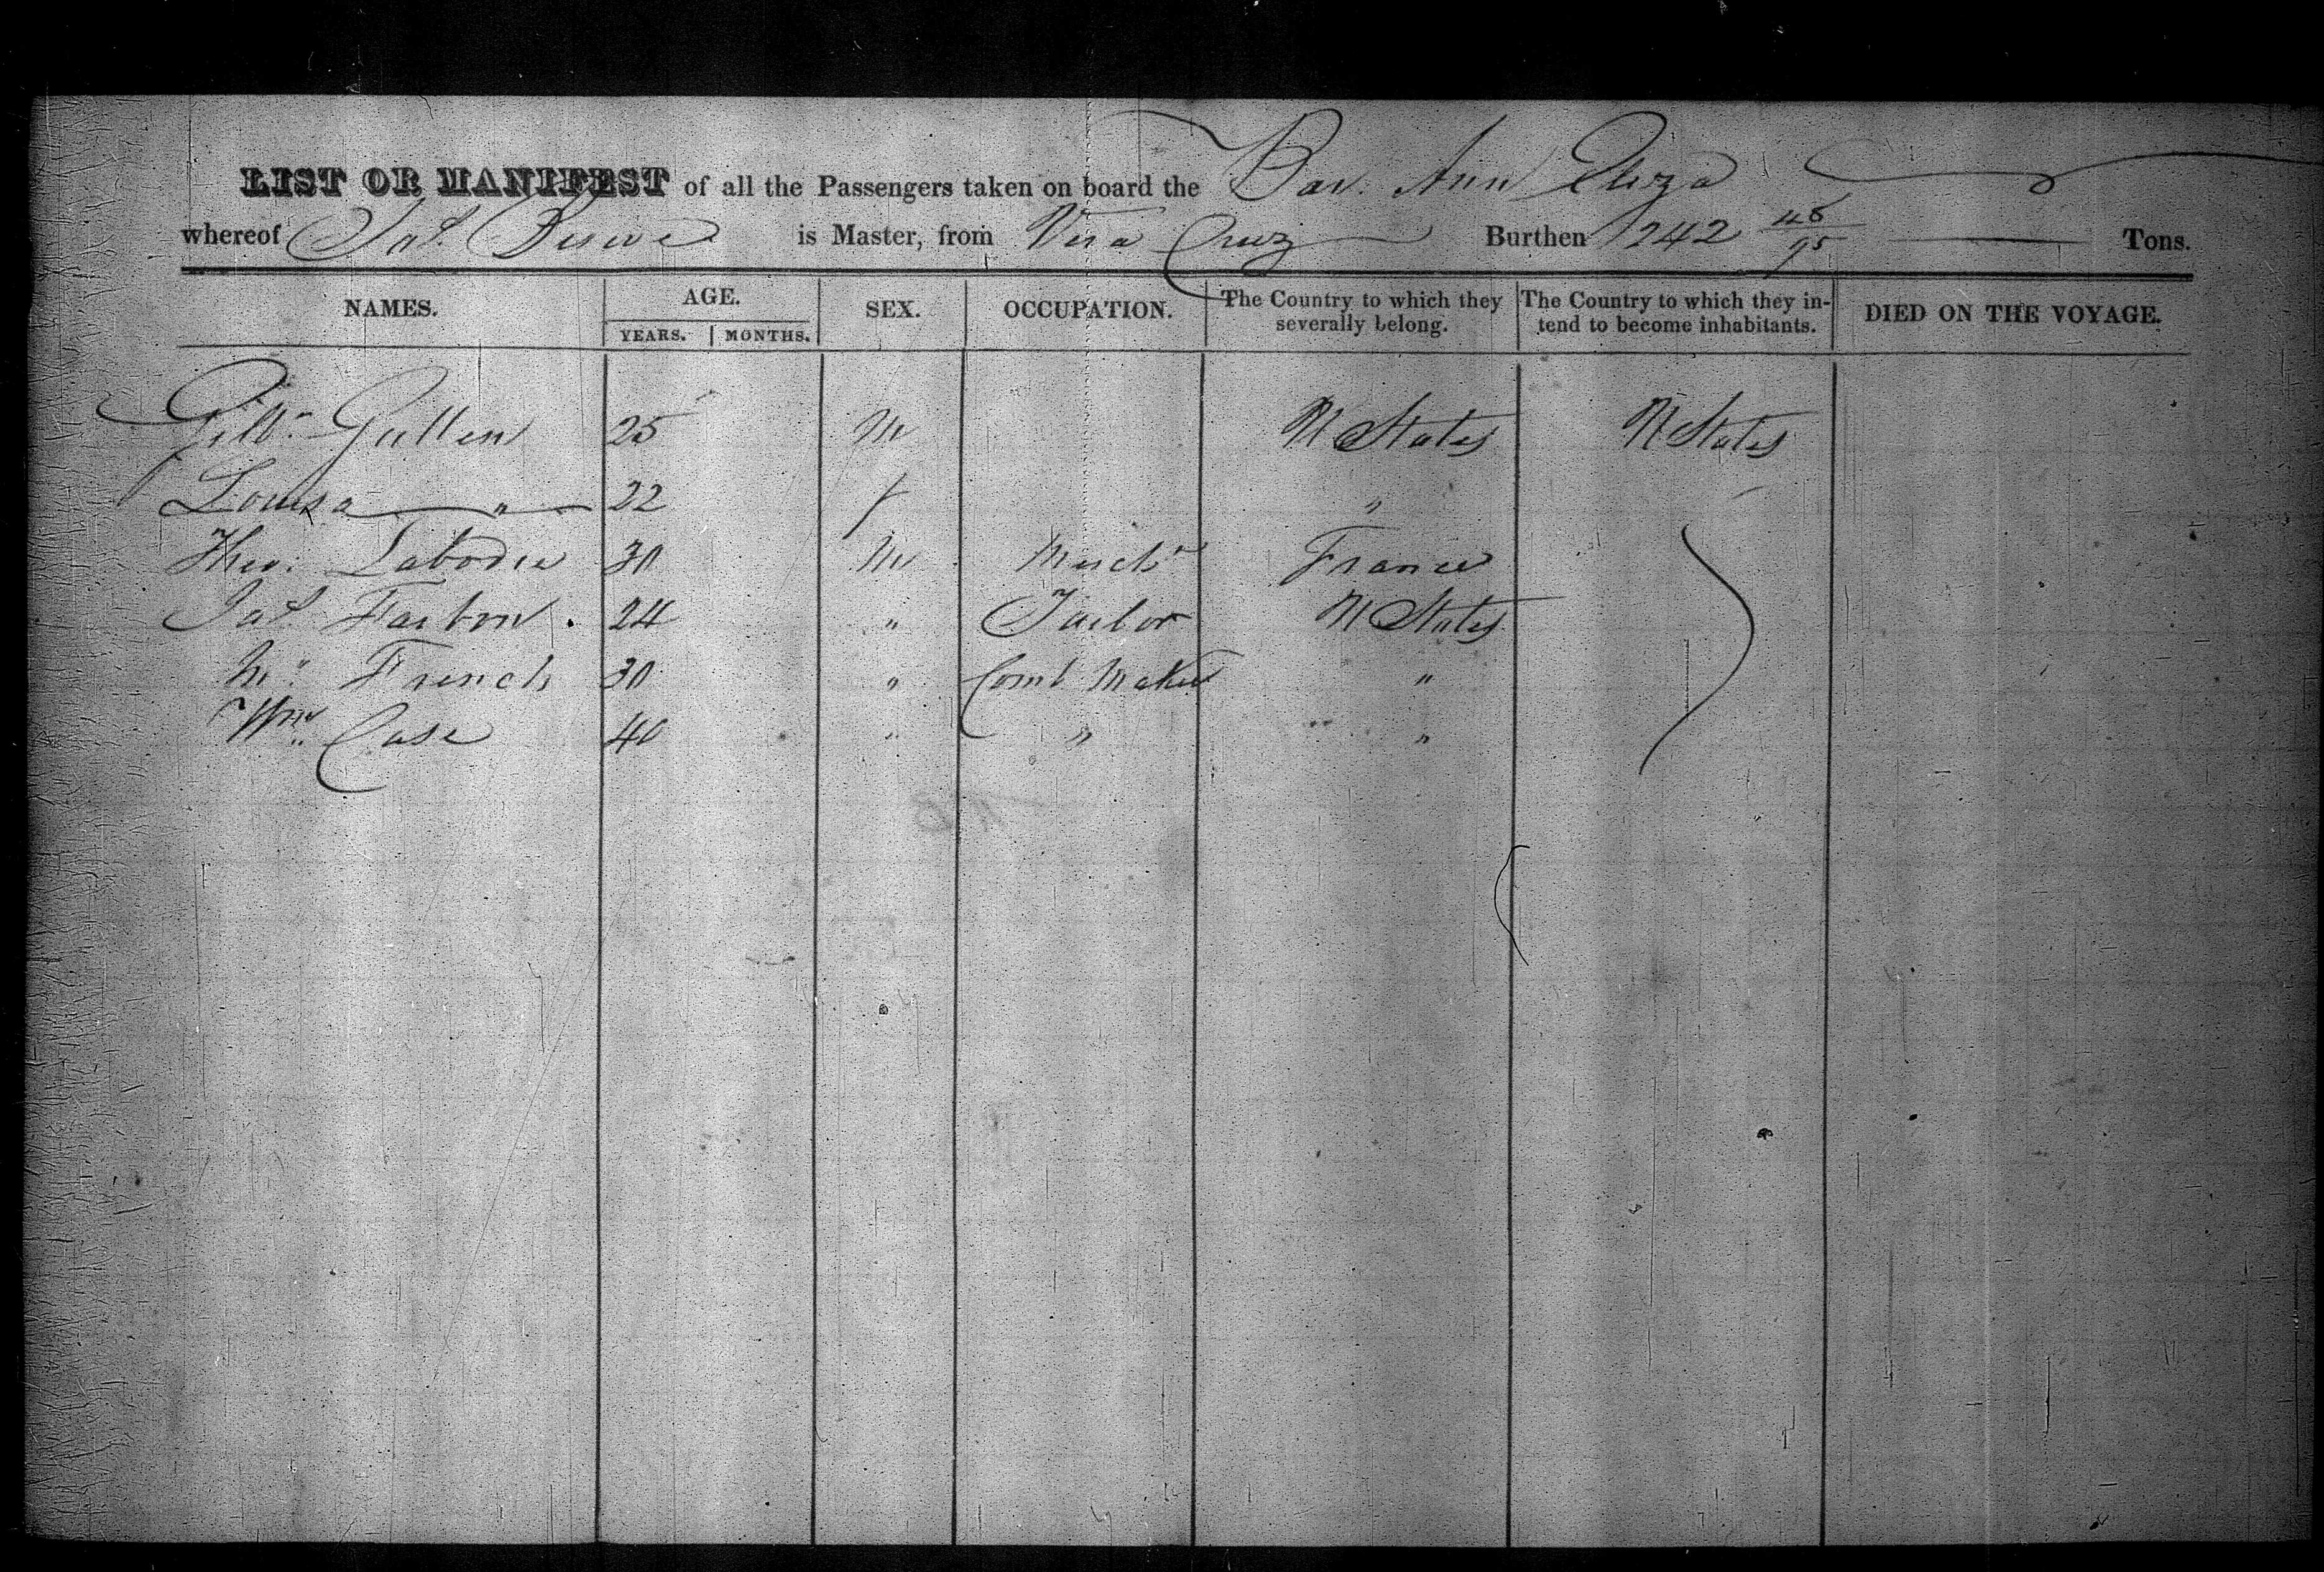 LIST OR MANIFEST of all the Passengers taken on board the Bar. Ann Eliza
whereof Jas. is Master, from Vera Cruz Burthen 242 48/95 Tons.
NAMES. AGE. SEX. OCCUPATION. The Country to which they severally belong. The Country to which they intend to become inhabitants. DIED ON THE VOYAGE.
YEARS. MONTHS.
Gilbt. Gullen 25 M U States U States
Louisa " 22 f "
Theo. Labodie 30 M Mercht France
Jas. 24 " Tailor U States
M. French 30 " Comb Maker "
Wm. Case 40 " " " "